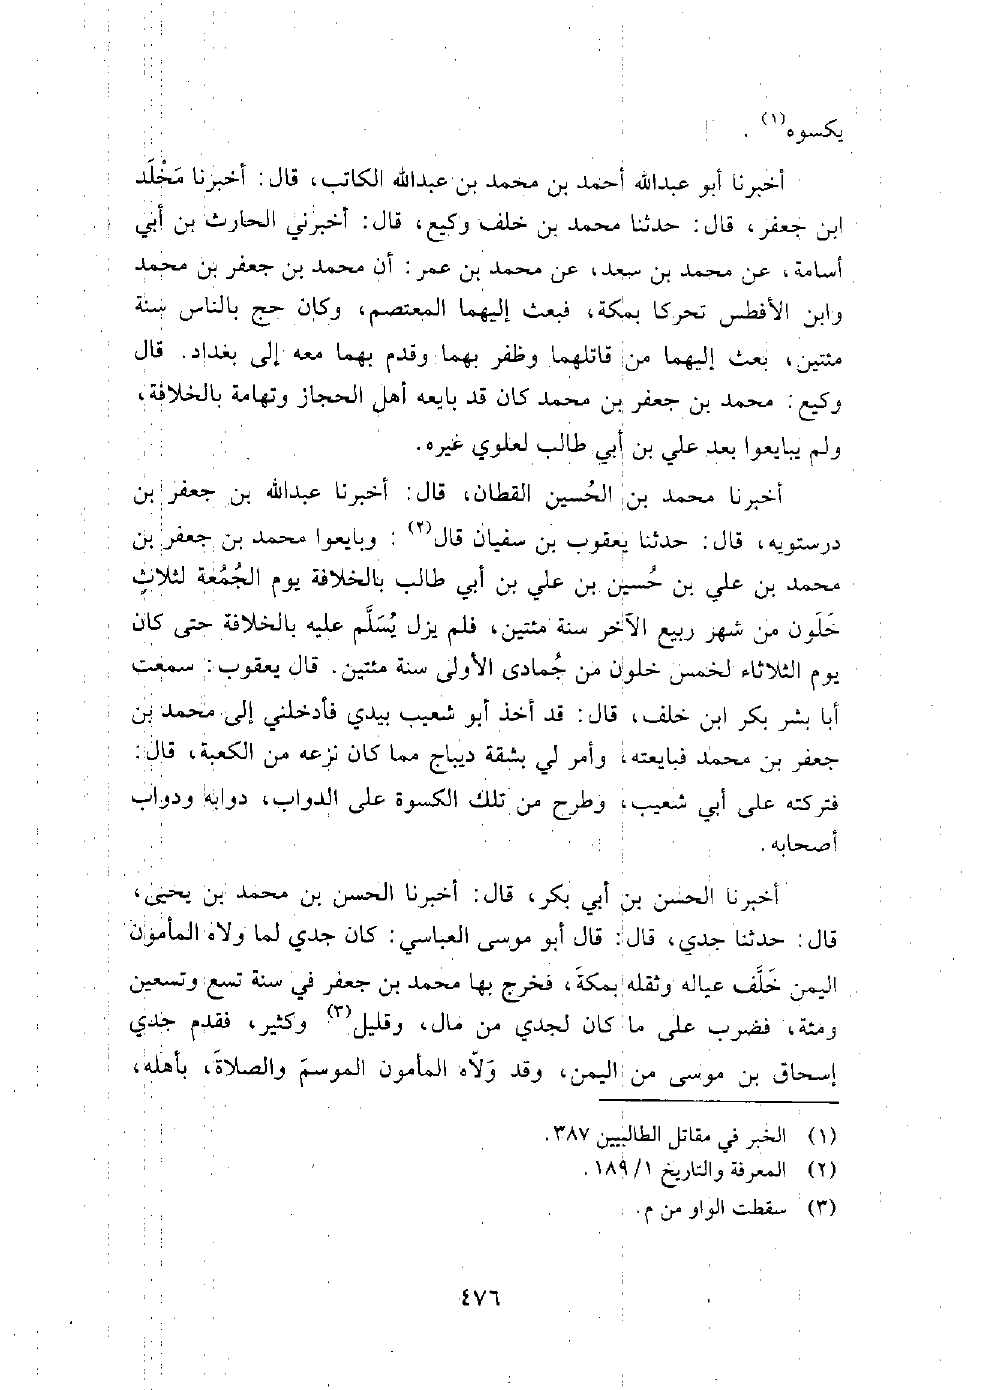 يكسوه(١) .
أخبرنا أبو عبدالله أحمد بن محمد بن عبدالله الكاتب، قال: أخبرنا مَخْلَد
ابن جعفر، قال: حدثنا محمد بن خلف وكيع، قال: أخبرني الحارث بن أبي
أسامة، عن محمد بن سعد، عن محمد بن عمر: أن محمد بن جعفر بن محمد
وابن الأفطس تحركا بمكة، فبعث إليهما المعتصم، وكان حج بالناس سنة
مئتين، بعث إليهما من قاتلهما وظفر بهما وقدم بهما معه إلى بغداد. قال
وكيع: محمد بن جعفر بن محمد كان قد بايعه أهل الحجاز وتهامة بالخلافة،
ولم يبايعوا بعد علي بن أبي طالب لعلوي غيره.
أخبرنا محمد بن الحُسين القطان، قال: أخبرنا عبدالله بن جعفر بن
درستويه، قال: حدثنا يعقوب بن سفيان قال(٢) : وبايعوا محمد بن جعفر بن
محمد بن علي بن حُسين بن علي بن أبي طالب بالخلافة يوم الجُمُعة لثلاثٍ
خَلَون من شهر ربيع الآخر سنة مئتين، فلم يزل يُسَلَّم عليه بالخلافة حتى كان
يوم الثلاثاء لخمس خلون من جُمادى الأولى سنة مئتين. قال يعقوب: سمعت
أبا بشر بكر ابن خلف، قال: قد أخذ أبو شعيب بيدي فأدخلني إلى محمد بن
جعفر بن محمد فبايعته، وأمر لي بشقة ديباج مما كان نزعه من الكعبة، قال:
فتركته على أبي شعيب، وطرح من تلك الكسوة على الدواب، دوابه ودواب
أصحابه .
أخبرنا الحسن بن أبي بكر، قال: أخبرنا الحسن بن محمد بن يحيى،
قال: حدثنا جدي، قال: قال أبو موسى العباسي: كان جدي لما ولاه المأمون
اليمن خَلَّف عياله وثقله بمكةَ، فخرج بها محمد بن جعفر في سنة تسع وتسعين
ومئة، فضرب على ما كان لجدي من مال، وقليل(٣) وكثير، فقدم جدي
إسحاق بن موسى من اليمن، وقد وَلاّه المأمون الموسمَ والصلاةَ، بأهله،
(١) الخبر في مقاتل الطالبيين ٣٨٧.
(٢) المعرفة والتاريخ ١/ ١٨٩ .
(٣) سقطت الواو من م.
٤٧٦